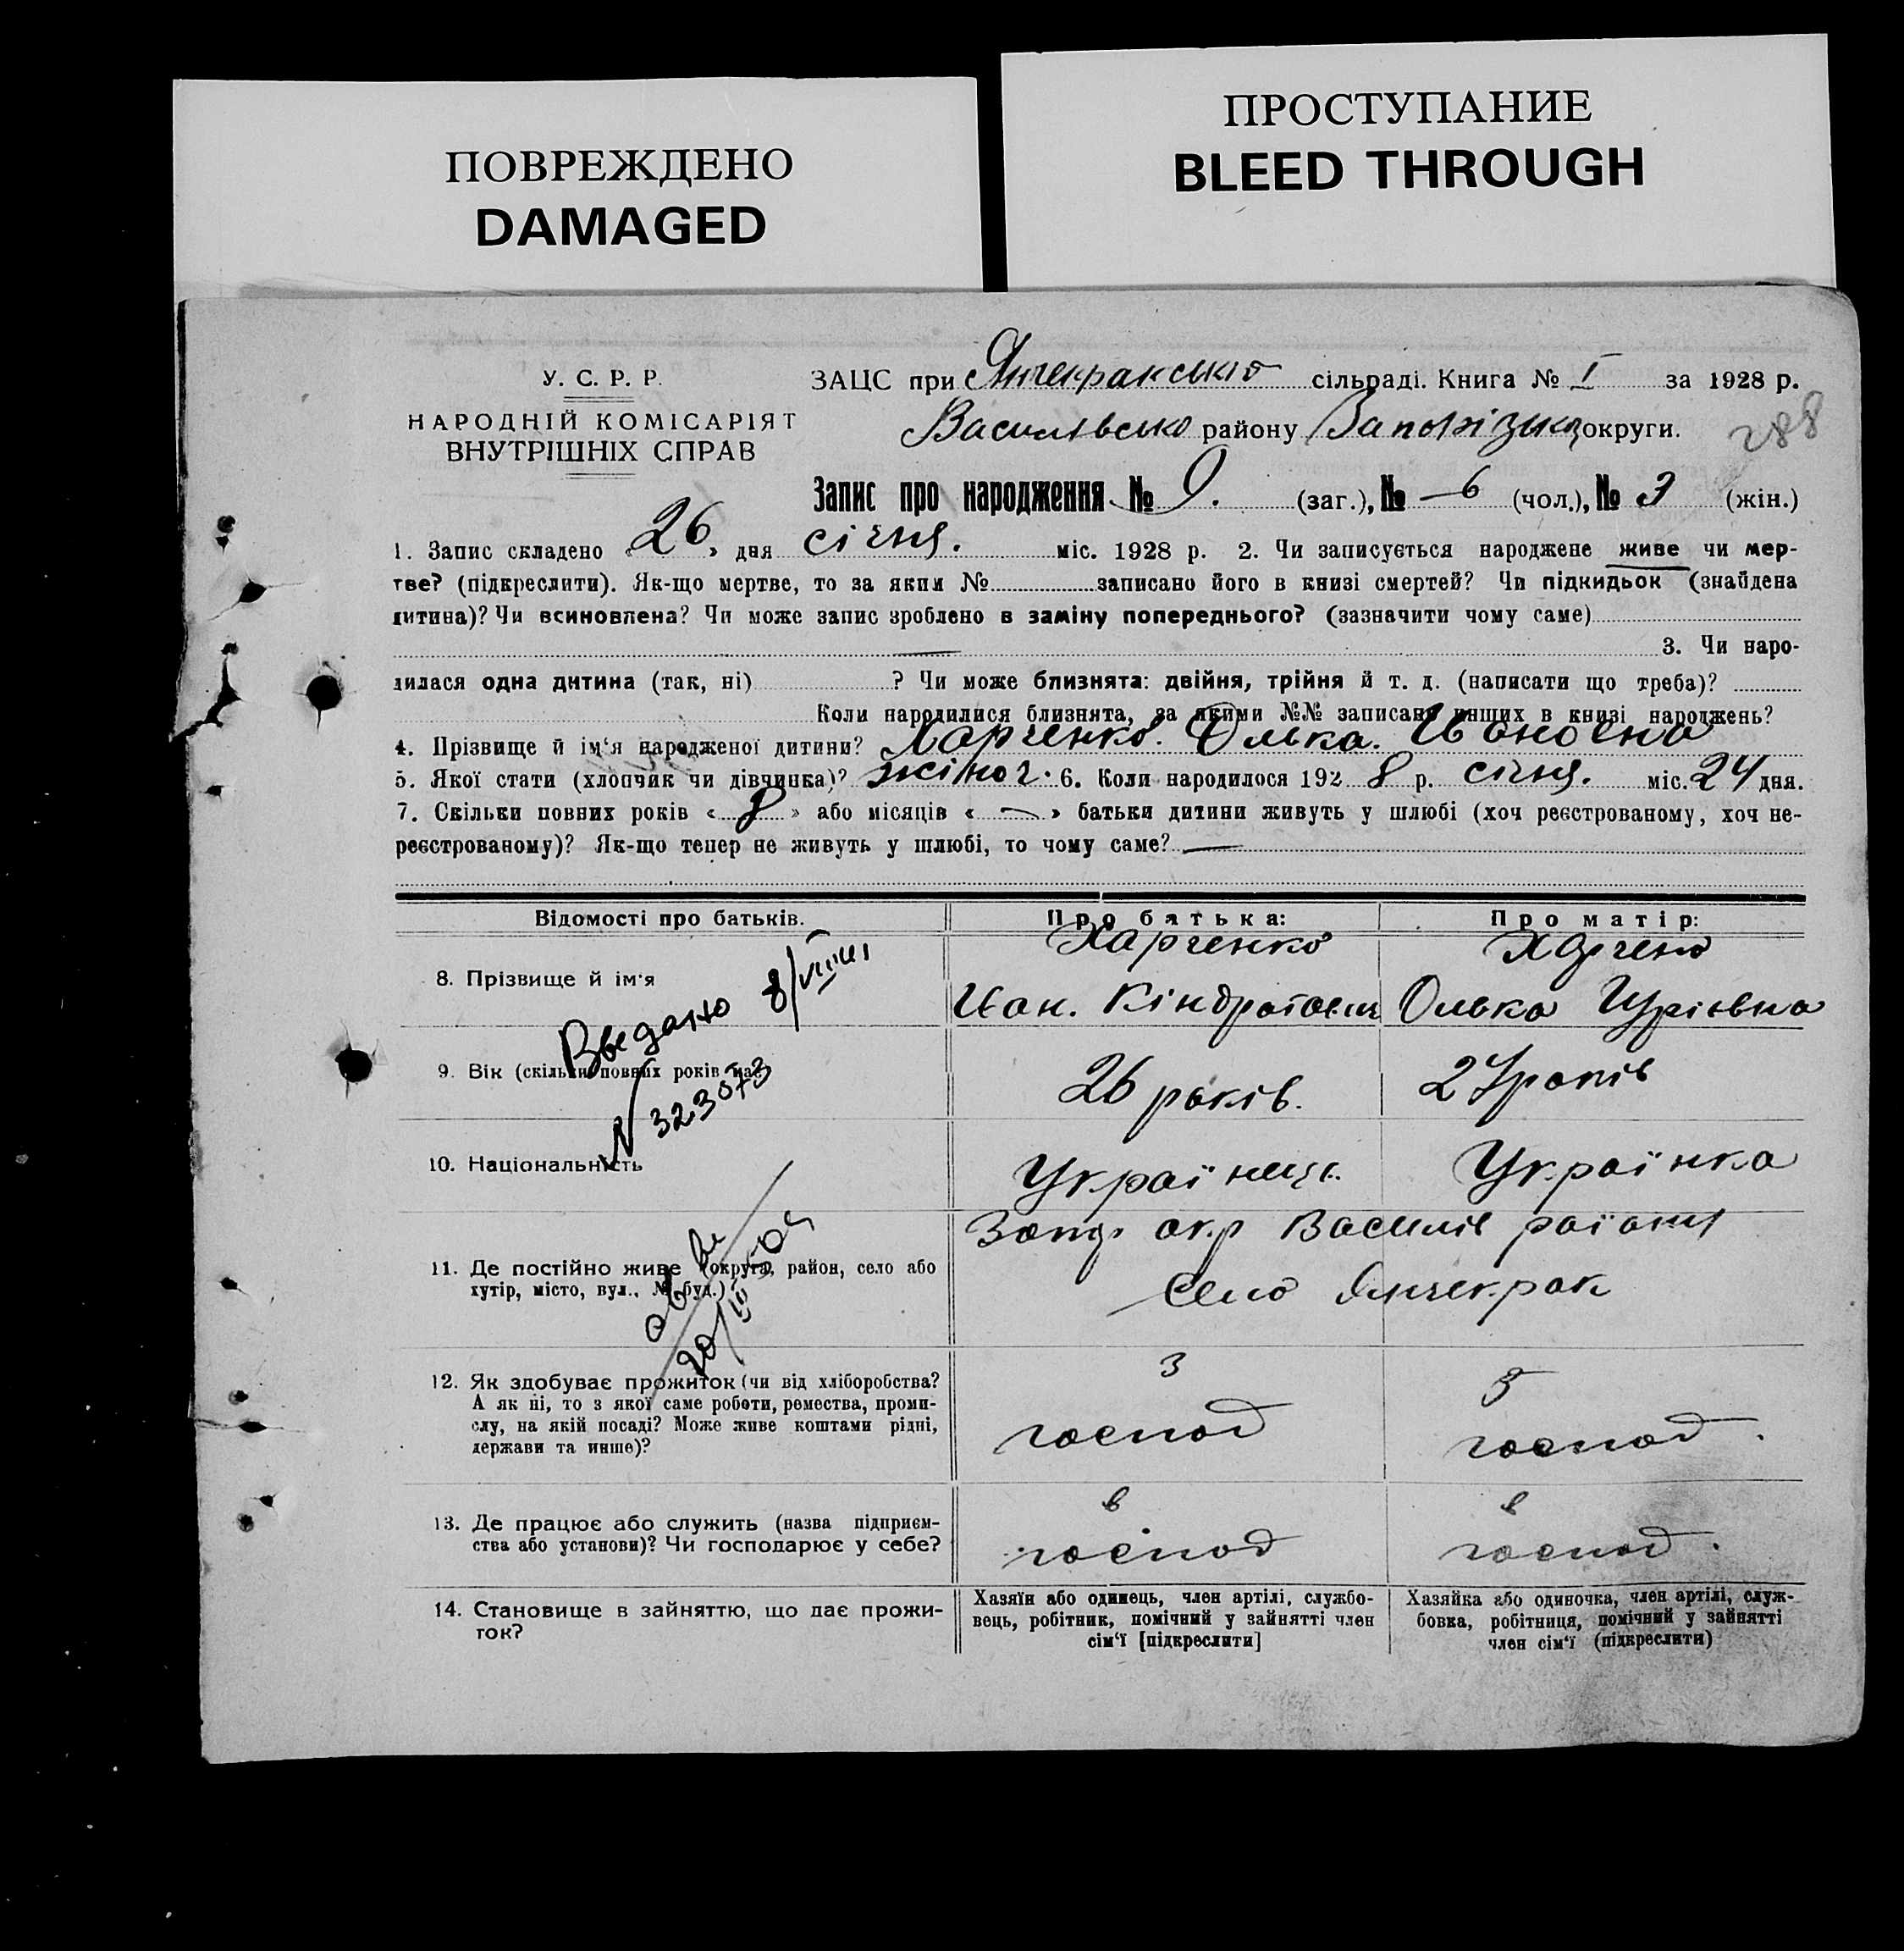 ПОВРЕЖДЕНО
DAMAGED
ПРОСТУПАНИЕ
BLEED THROUGH
У. С. Р. Р.
НАРОДНІЙ КОМІСАРІЯТ
ВНУТРІШНІХ СПРАВ
ЗАЦС при Янчекракській сільраді. Книга № I за 1928 р.
Василівсько району Запорізько округи.
288
Запис про народження № 9. (заг.), № 6 (чол.), № 3 (жін.)
1. Запис складено „26„ дня січня. міс. 1928 р. 2. Чи записується народжене живе чи мер-
тве? (підкреслити). Як-що мертве, то за яким № записано його в книзі смертей? Чи підкидьок (знайдена
дитина)? Чи всиновлена? Чи може запис зроблено в заміну попереднього? (зазначити чому саме)
— 3. Чи наро-
дилася одна дитина (так, ні) ? Чи може близнята: двійня, трійня й т. д. (написати що треба)?
Коли народилися близнята, за якими №№ записано инших в книзі народжень?
4. Прізвище й ім‘я народженої дитини? Харченко. Олька. Ивановна
5. Якої стати (хлопчик чи дівчинка)? жіноч. 6. Коли народилося 1928 р. січня. міс. 24 дня.
7. Скільки повних років « 8 » або місяців « — » батьки дитини живуть у шлюбі (хоч реєстрованому, хоч не-
реєстрованому)? Як-що тепер не живуть у шлюбі, то чому саме? —
Відомості про батьків. Про батька: Про матір:
8. Прізвище й ім‘я Харченко Харченко
Иван. Кіндратович Олька Юріївна
9. Вік (скільки повних років має) 26 років. 27 років
N 323073
10. Національність Українець. Українка
11. Де постійно живе (округа, район, село або
хутір, місто, вул., № буд.) Запор окр Василів району
Село Янчекрак
12. Як здобуває прожиток (чи від хліборобства?
А як ні, то з якої саме роботи, ремества, проми-
слу, на якій посаді? Може живе коштами рідні,
держави та инше)? з господ з господ.
13. Де працює або служить (назва підприєм-
ства або установи)? Чи господарює у себе? в господ в господ.
14. Становище в зайняттю, що дає прожи-
ток?
Хазяїн або одинець, член артілі, службо-
вець, робітник, помічний у зайнятті член
сім‘ї [підкреслити]
Хазяйка або одиночка, член артілі, служ-
бовка, робітниця, помічний у зайнятті
член сім‘ї (підкреслити)